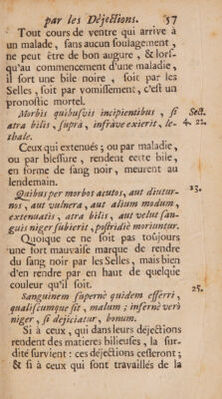 par les Déjections. 57
Tout cours de ventre qui arrive à
un malade, sans aucun soulagement,
ne peut être de bon augure, & lors-
qu'au commencement d'une maladie,
il sort une bile noire, soit par les
Selles, soit par vomissement, c'est un
pronostic mortel.
Morbis quibusvis incipientibus, si
atra bilis, suprà, infràve exierit, le-
thale.
Sect.
4. 22.
Ceux qui extenués; ou par maladie,
ou par blessure, rendent cette bile,
en forme de sang noir, meurent au
lendemain.
Quibus per morbos acutos, aut diutur-
nos, aut vulnera, aut alium modum,
extenuatis, atra bilis, aut velut san-
guis niger subierit, postridiè moriuntur.
23.
Quoique ce ne soit pas toûjours
une fort mauvaise marque de rendre
du sang noir par les Selles, mais bien
d'en rendre par en haut de quelque
couleur qu'il soit.
Sanguinem supernè quidem efferri,
qualiscumque sit, malum; infernè verò
niger, si dejiciatur, bonum.
25.
Si à ceux, qui dans leurs déjections
rendent des matieres bilieuses, la sur-
dité survient: ces déjections cesseront;
& si à ceux qui sont travaillés de la